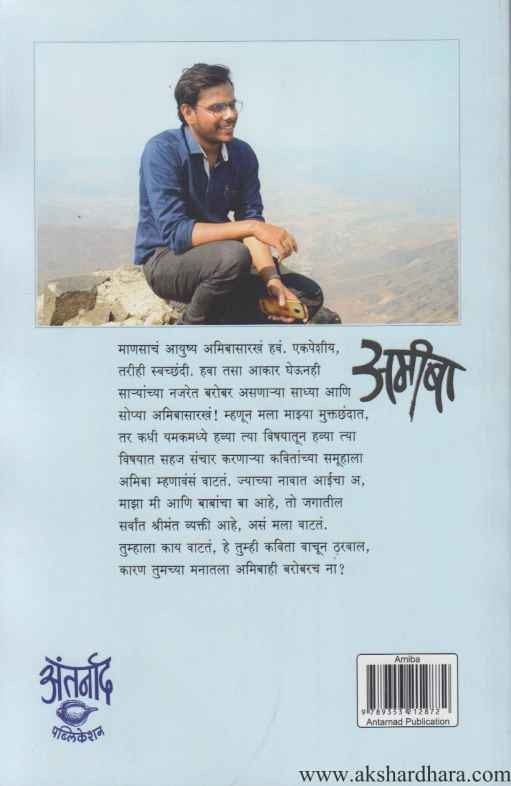 माणसाचं आयुष्य अमिबासारखं हवं. एकपेशीय,
तरीही स्वच्छंदी. हवा तसा आकार घेऊनही
साऱ्यांच्या नजरेत बरोबर असणाऱ्या साध्या आणि
सोप्या अमिबासारखं! म्हणून मला माझ्या मुक्तछंदात,
तर कधी यमकमध्ये हव्या त्या विषयातून हव्या त्या
विषयात सहज संचार करणाऱ्या कवितांच्या समूहाला
अमिबा म्हणावंसं वाटतं. ज्याच्या नावात आईचा अ,
माझा मी आणि बाबांचा बा आहे, तो जगातील
सर्वांत श्रीमंत व्यक्ती आहे, असं मला वाटतं.
तुम्हाला काय वाटतं, हे तुम्ही कविता वाचून ठरवाल,
कारण तुमच्या मनातला अमिबाही बरोबरच ना?
अमीबा
अंतर्नाद
पब्लिकेशन
Amiba
9 789353 212872
Antarnad Publication
www.akshardhara.com